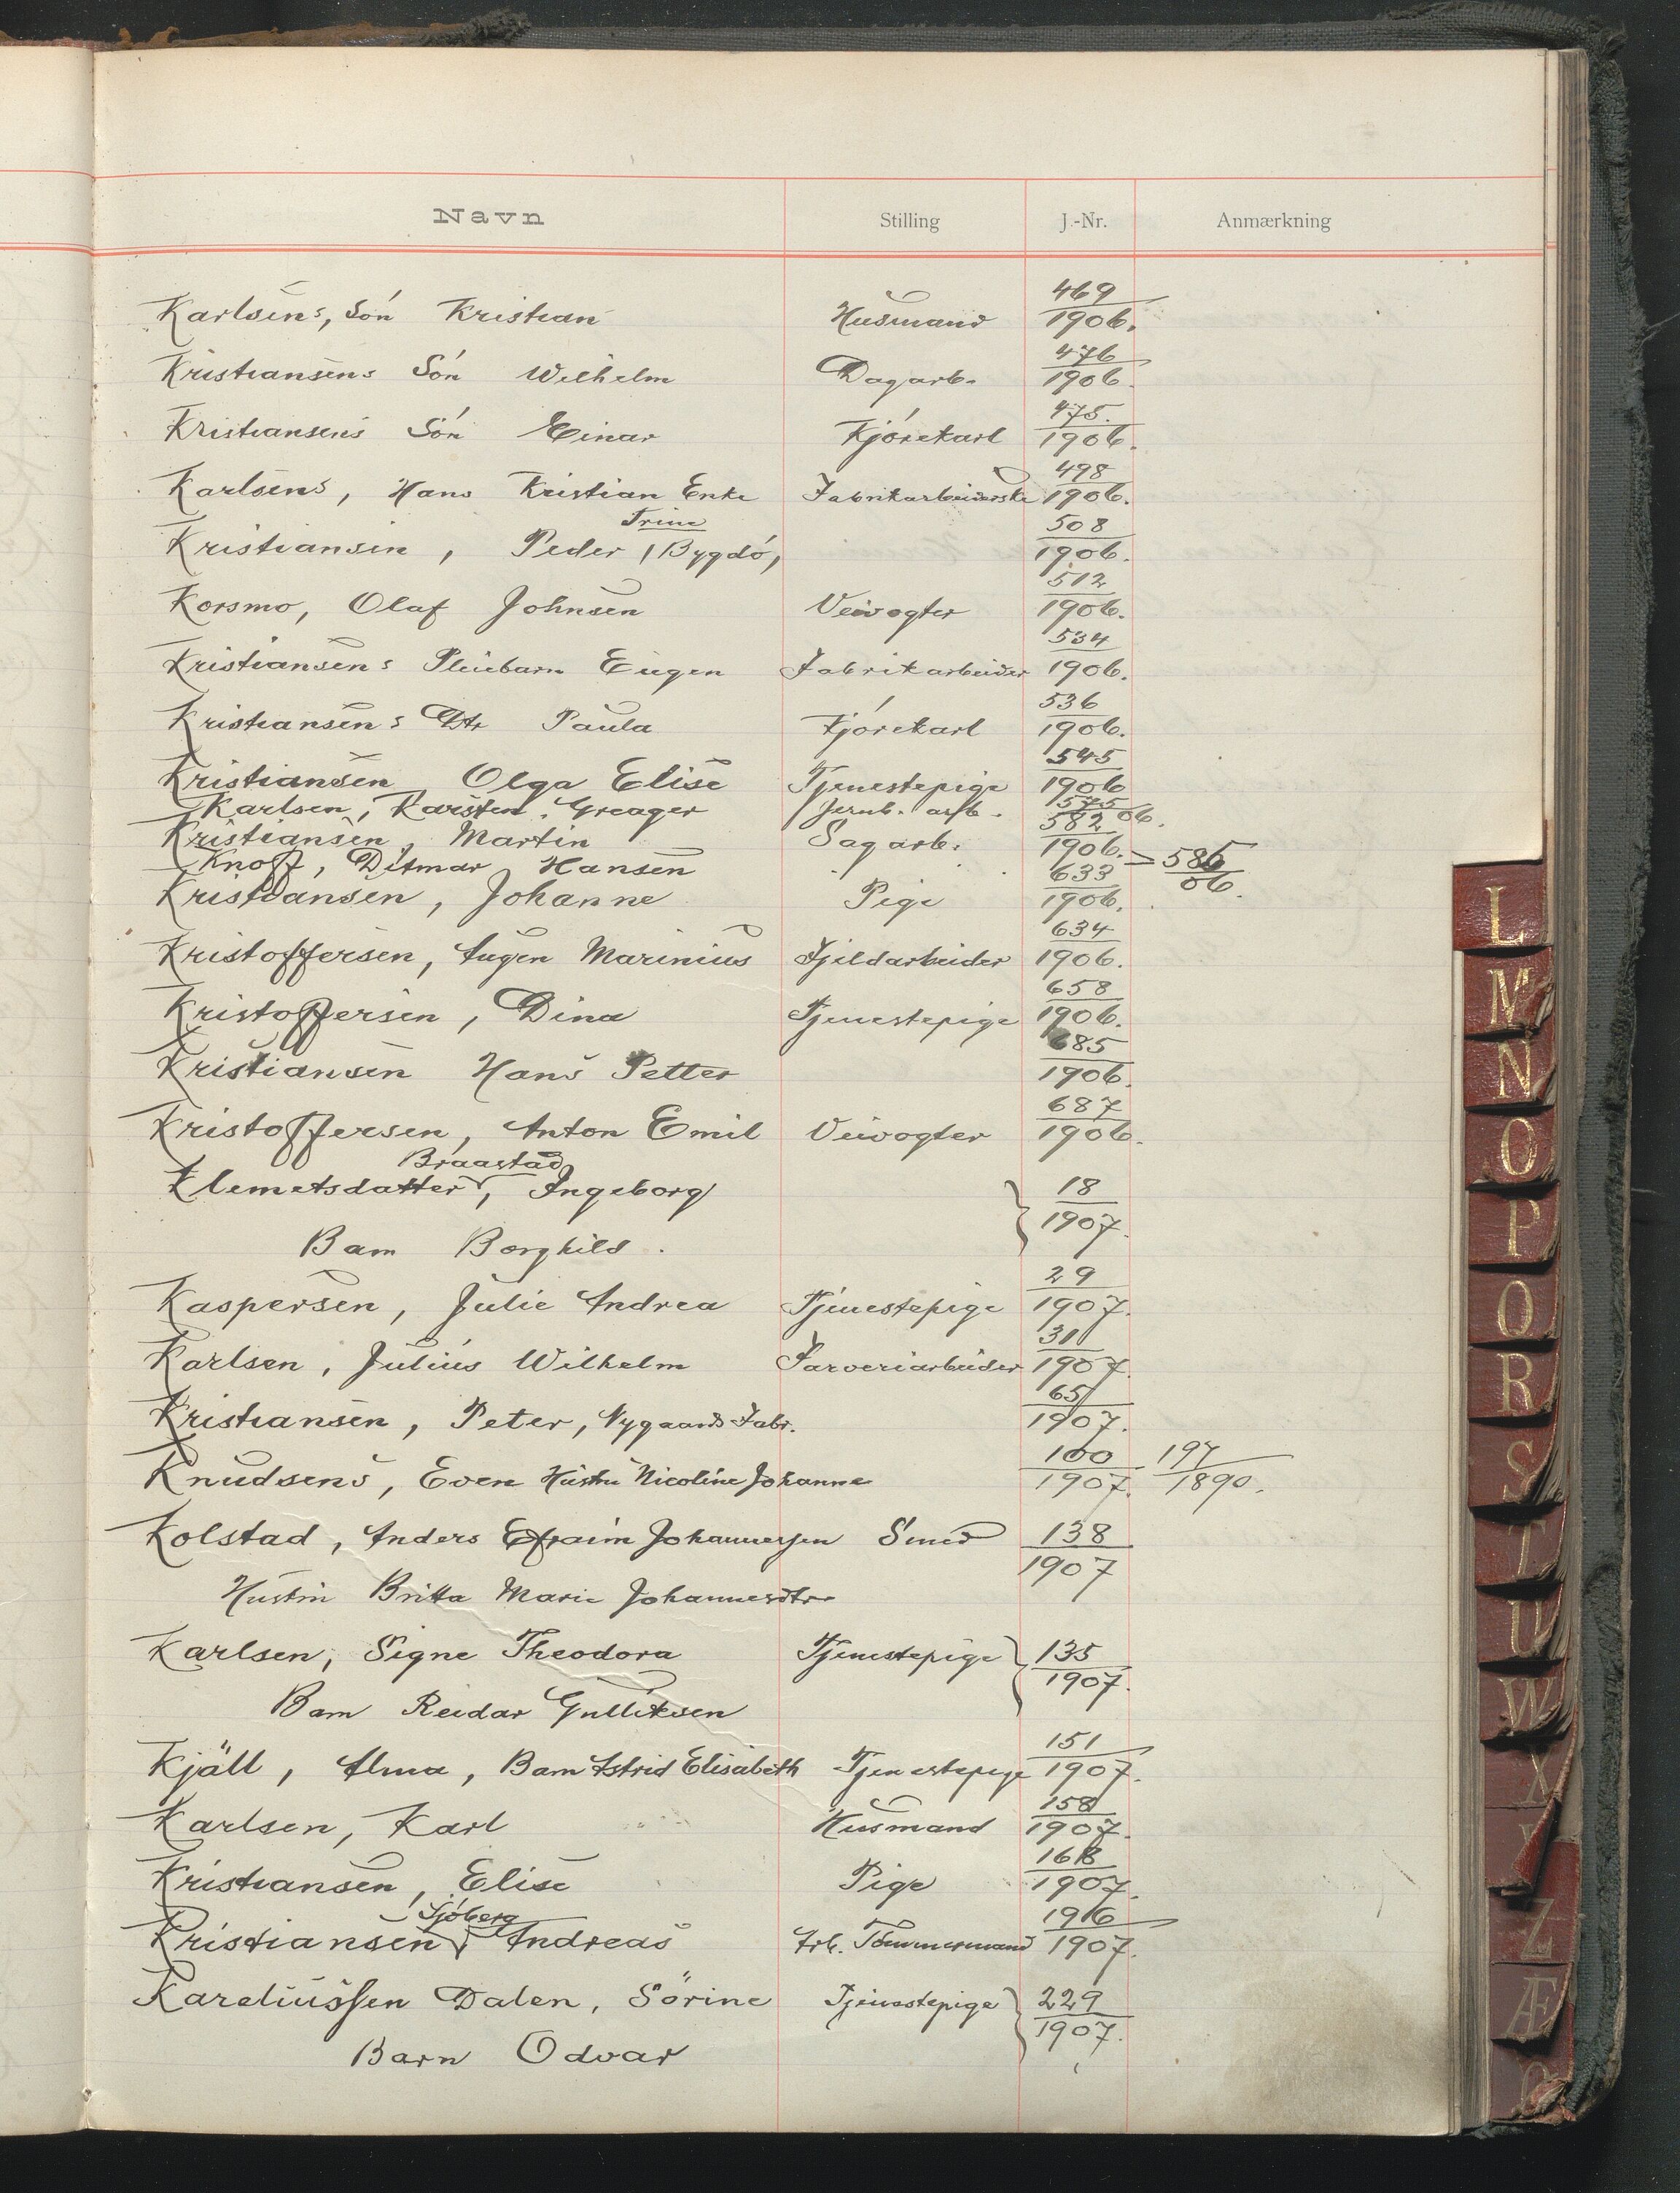 Navn Stilling J.-Nr. Anmærkning
Karlsens, Sön Kristian Husmand 469/1906.
Kristiansens Sön Wilhelm Dagarb. 476/1906.
Kristiansens Sön Einar Kjörekarl 475/1906.
Karlsens, Hans Kristian Enke Fabrikarbeiderske 498/1906.
Trine
Kristiansen, Peder (Bygdö) 508/1906.
Korsmo, Olaf Johnsen Veivogter 512/1906.
Kristiansens Pleiebarn Eugen Fabrikarbeider 534/1906.
Kristiansens Dtr Paula Kjörekarl 536/1906.
Kristiansen Olga Elise Tjenestepige 545/1906
Karlsen, Karsten Greager Jernb. arb. 575/06.
Kristiansen, Martin Sagarb. 582/1906.
Knoff, Ditmar Hansen = 586/06.
Kristiansen, Johanne Pige 633/1906.
Kristoffersen, Augen Marinius Fjeldarbeider 634/1906.
Kristoffersen, Dina Tjenestepige 658/1906.
Kristiansen Hans Petter 685/1906.
Kristoffersen, Anton Emil Veivogter 687/1906.
Braastad
Klemetsdatter, Ingeborg 18/1907.
Barn Borghild.
Kaspersen, Julie Andrea Tjenestepige 29/1907.
Karlsen, Julius Wilhelm Farveriarbeider 311/1907.
Kristiansen, Peter, Nygaards Fabr. 65/1907.
Knudsens, Even Hustru Nicoline Johanne 100/1907. 197/1890.
Kolstad, Anders Efraim Johannessen Smed 138/1907
Hustru Britta Marie Johannesdtr
Karlsen, Signe Theodora Tjenestepige 135/1907.
Barn Reidar Gulliksen
Kjäll, Alma, Barn Astrid Elisabeth Tjenestepige 151/1907.
Karlsen, Karl Husmand 158/1907.
Kristiansen, Elise Pige 168/1907.
Sjöberg
Kristiansen, Andreas Arb. Tömmermand 196/1907.
Kareliussen Dalen, Sörine Tjenestepige 229/1907.
Barn Odvar
L
M
N
O
P
Q
R
S
T
U
W
X
Y
Z
Æ
Ø